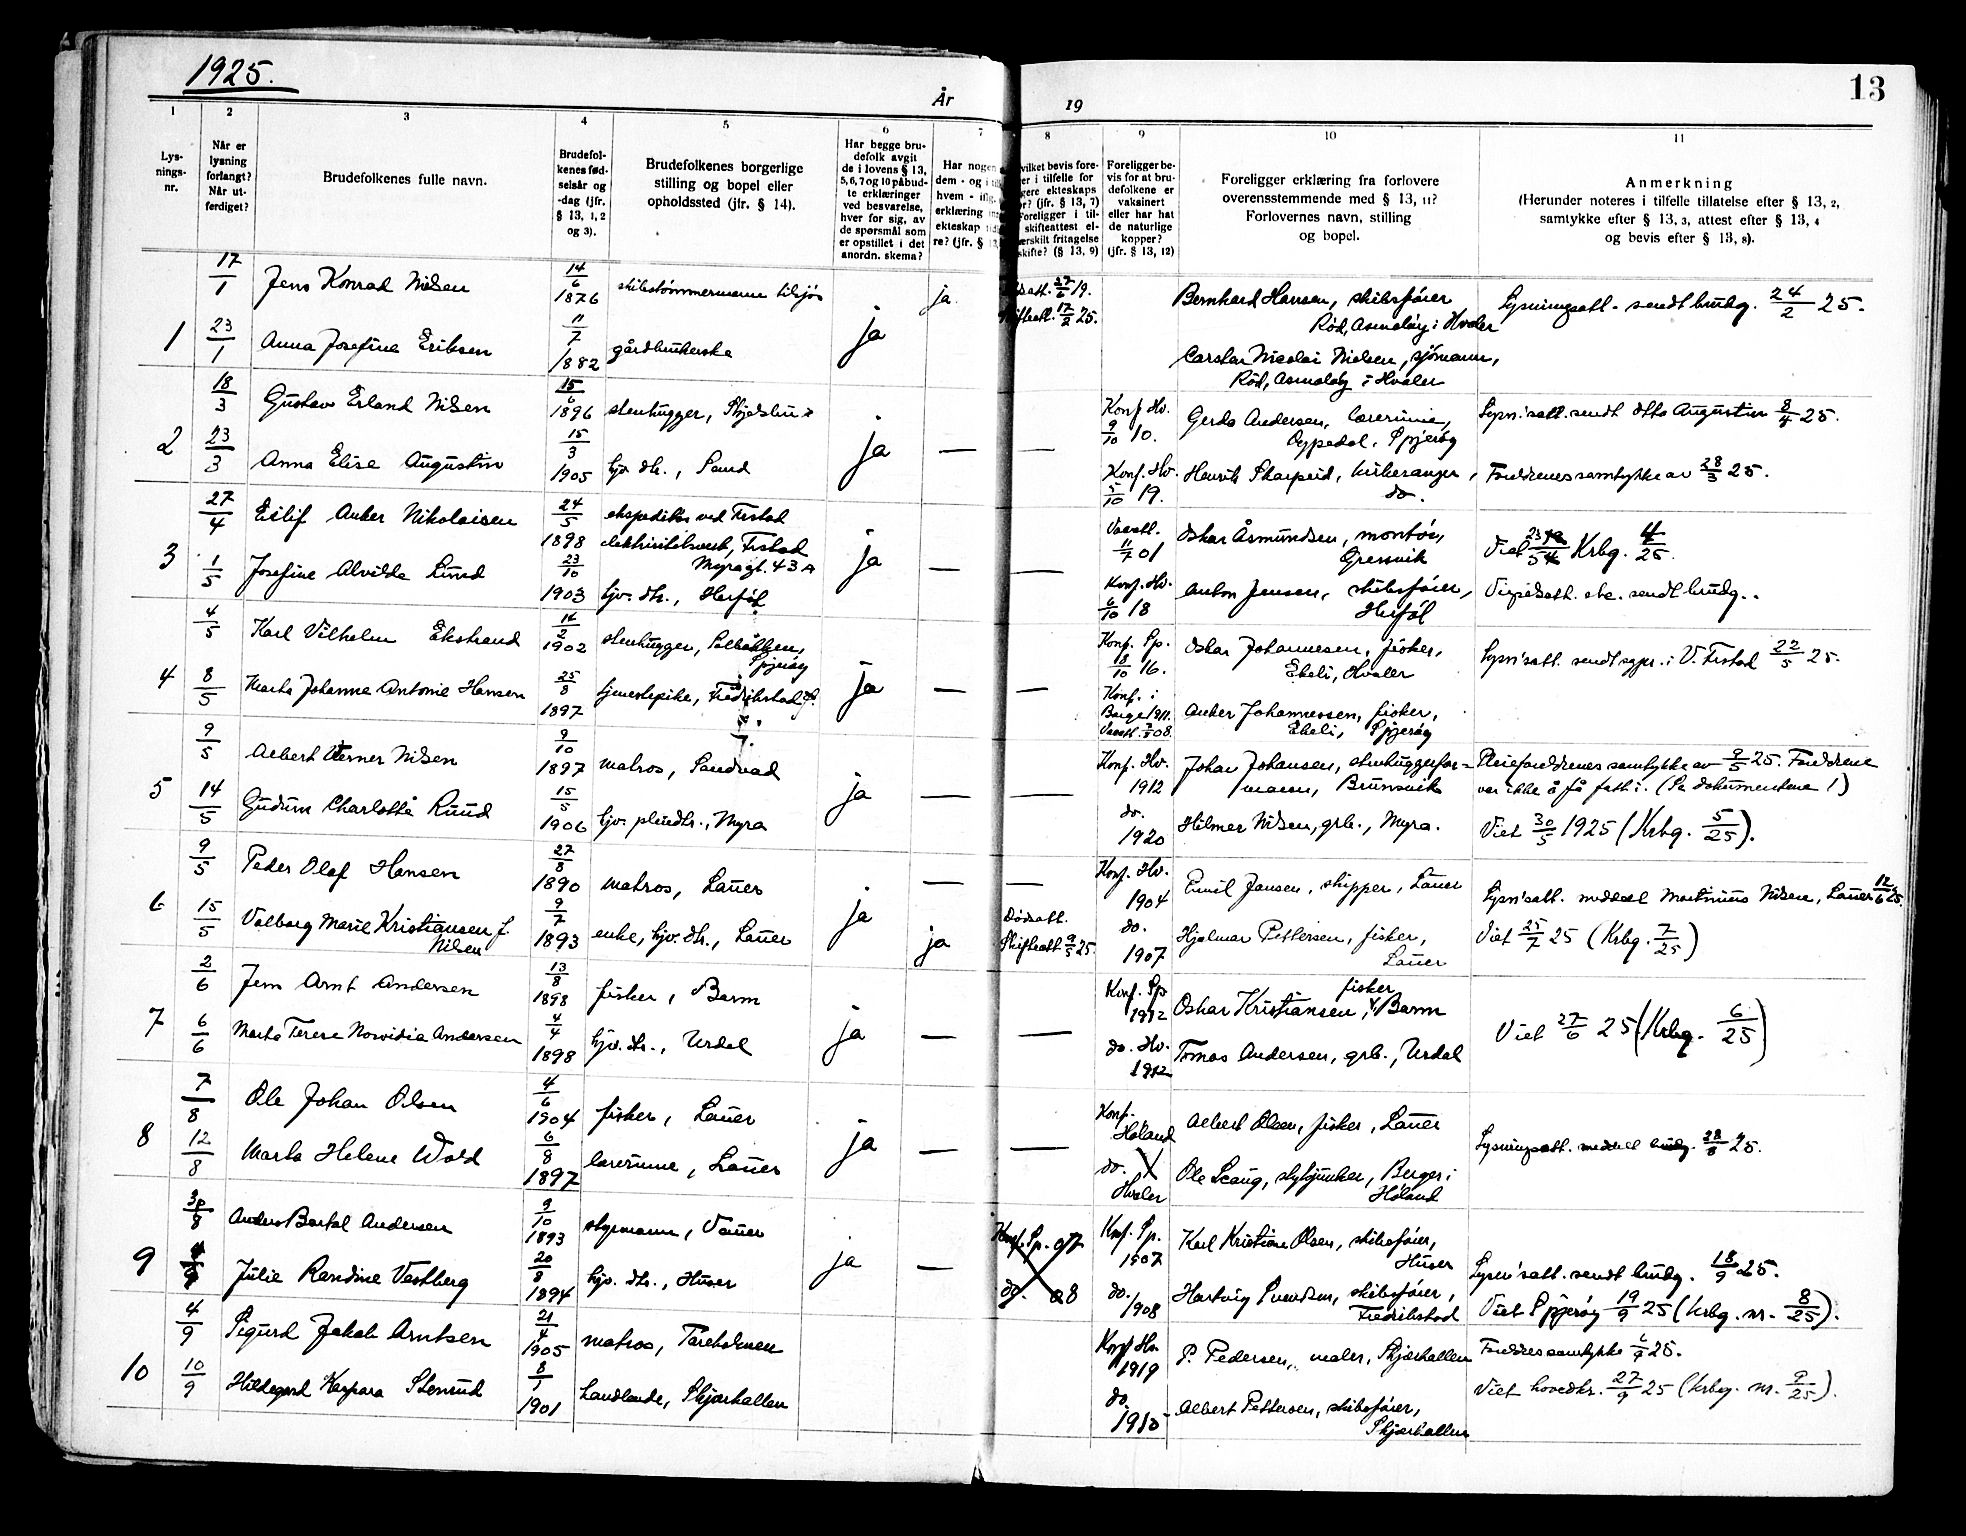 1925.
År
19
13
1
2
3
4
5
6
7
8
9
10
11
Lys-
nings-
nr.
Når er
lysning
forlangt?
Når ut-
ferdiget?
Brudefolkenes fulle navn.
Brudefol-
kenes fød-
selsår og
-dag (jfr.
§ 13, 1, 2
og 3).
Brudefolkenes borgerlige
stilling og bopel eller
opholdssted (jfr. § 14).
Har begge bru-
defolk avgit
de i lovens § 13,
5, 6, 7 og 10 påbud-
te erklæringer
ved besvarelse,
hver for sig, av
de spørsmål som
er opstillet i det
anordn. skema?
Har nogen
dem - og i
hvem - ifl.
erklæring
ekteskap
re? (jfr. §
vilket bevis fore-
er i tilfelle for
gere ekteskaps
(jfr. § 13, 7)
Foreligger i til-
skifteattest el-
særskilt fritagelse
skifte? (§ 13, 9)
Foreligger be-
vis for at bru-
defolkene er
vaksinert
eller har hat
de naturlige
kopper?
(jfr. § 13, 12)
Foreligger erklæring fra forlovere
overensstemmende med § 13, 11?
Forlovernes navn, stilling
og bopel.
Anmerkning
(Herunder noteres i tilfelle tillatelse efter § 13, 2,
samtykke efter § 13, 3, attest efter § 13, 4
og bevis efter § 13, 8).
17/1 Jens Konrad Nilsen 14/6 1876 skibstømmermann tilsjøs ja 27/6 19. Bernhard Hansen, skibsfører Lysningsatt. sendt brudg. 24/2 25.
17/2 25. Rød, Asmaløy i Hvaler
1 23/1 Anna Josefine Eriksen 11/7 1882 gårdbrukerske ja Carsten Nicolai Nielsen, sjømann,
Rød, Asmaløy i Hvaler
18/3 Gustav Erland Nilsen 15/6 1896 stenhugger, Konf. Hv. 9/10 10. Gerda Andersen, lærerinne, Lysn'satt. sendt Otto Augustin 8/4 25.
Spjerøy
2 23/3 Anna Elise Augustin 15/3 1905 hjv. dtr., Sand ja — — Konf. Hv. 5/10 19. Henrik Skarpeid, kirkesanger, Foreldrenes samtykke av 28/3 25.
do.
27/4 Eilif Anker Nikolaisen 24/5 1898 ekspeditør ved Frstad Vacatt. 11/7 01 Oskar Åsmundsen, montør, Viet Krbg. 4/25.
elektrisitetsverk, Frstad Gressvik
Myragt. 43 A
3 1/5 Josefine Alvilde Lund 23/10 1903 hjv. dtr., Herføl ja — — Konf. Hv. 6/10 18 Anton Jensen, skibsfører, Vigselsatt. etc. sendt brudg..
Herføl
4/5 Karl Vilhelm Ekstrand 14/2 1902 stenhugger, Solbakken, Konf. Sp. 18/10 16. Oskar Johannesen, fisker, Lysn'satt. sendt sgpr. i V. Frstad 22/5 25.
Spjerøy Ekeli, Hvaler
4 8/5 Marta Johanne Antonie Hansen 25/8 1897 tjenestepike, Fredrikstad ja — — Konf. i
Borge 1911. Anker Johannessen, fisker,
Vacatt. 08. Ekeli, Spjerøy
9/5 Albert Verner Nilsen 9/10 1897 matros, Sandvad Konf. Hv. 1912 Johan Johansen, stenhuggerfor- Pleieforeldrenes samtykke av 9/5 25. Foreldrene
mann, Brunsvik var ikke å få fatt i. (Se dokumentene!)
5 14/5 Gudrun Charlotte Ruud 15/5 1906 hjv. pleiedtr., Myra ja — — do. 1920 Hilmer Nilsen, grb., Myra. Viet 30/5 1925 (Krbg. 5/25).
9/5 Peder Olaf Hansen 27/8 1890 matros, Lauer — — Konf. Hv. 1904 Emil Jansen, skipper, Lauer Lysn'satt. meddelt Martinius Nilsen, Lauer 12/6 25.
6 15/5 Valborg Marie Kristiansen f. 9/7 1893 enke, hjv. dtr., Lauer ja ja Dødsatt. do. 1907 Hjalmar Pettersen, fisker, Viet 25/7 25 (Krbg. 7/25)
Nilsen Skifteatt. 9/5 25. Lauer
2/6 Jens Arnt Andersen 13/8 1898 fisker, Barm Konf. Sp 1912 Oskar Kristiansen, fisker, Barm Viet 27/6 25 (Krbg. 6/25)
7 6/6 Marta Terese Andersen 4/4 1898 hjv. dtr., Urdal ja — — do. Hv. 1912 Tomas Andersen, grb., Urdal
7/8 Ole Johan Olsen 4/6 1904 fisker, Lauer Konf. Høland Albert Olsen, fisker, Lauer
8 12/8 Marta Helene Wold 6/8 1897 lærerinne, Lauer ja — — do. Hvaler Ole Scaug, Berger i Lysningsatt. meddelt brudg. 28/8 25.
Høland
30/8 Anders Bertol Andersen 9/10 1893 styrmann, Vauer Konf. Sp. 07 Konf. Sp. 1907 Karl Kristian Olsen, skibsfører,
Huser Lysn'satt. sendt brudg. 18/9 25.
9 4/9 Julie Randine Vestberg 20/8 1894 hjv. dtr., Huser ja — do. 08 do. 1908 Hartvig Svendsen, skibsfører, Viet Spjerøy 19/9 25 (Krbg. nr. 8/25).
Fredrikstad
4/9 Sigurd Jakob Arntsen 21/4 1905 matros, Tareholmen Konf. Hv. 1919 P. Pedersen, maler, Skjærhallen Foreldres samtykke 6/9 25.
10 10/9 Hildegard Kaspara Stenrud 8/1 1901 Skjærhallen do. Albert Pettersen, skibsfører, Viet hovedkr. 27/9 25 (Krbg. nr. 9/25).
Skjærhallen